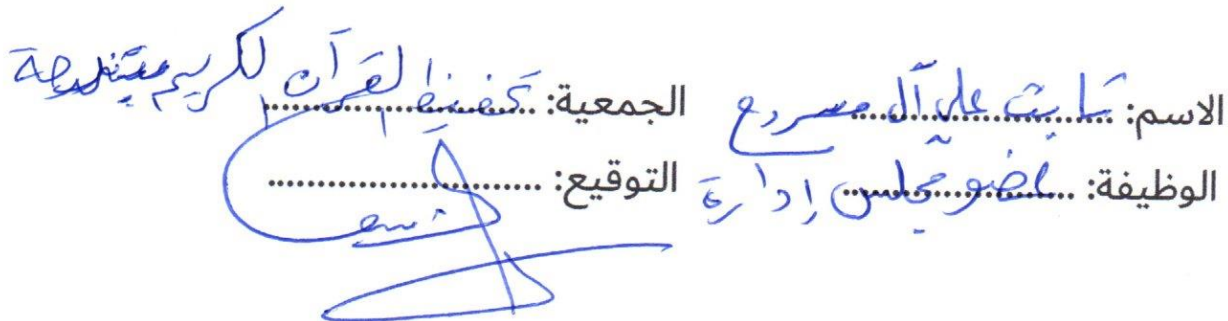 الاسم: ثابت علي آل مسردع الجمعية: تحفيظ القرآن الكريم
الوظيفة: عضو مجلس إدارة التوقيع: